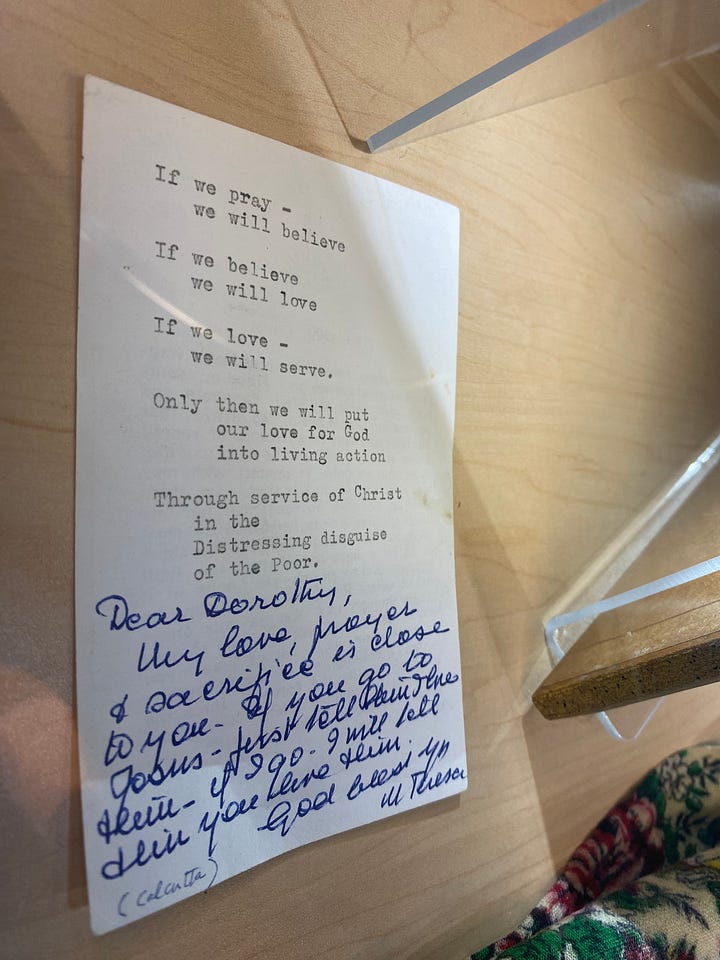 If we pray -
we will believe
If we believe
we will love
If we love -
we will serve.
Only then we will put
our love for God
into living action
Through service of Christ
in the
Distressing disguise
of the Poor.
Dear Dorothy,
My love, prayer
& sacrifice is close
to you - If you go to
Jesus - first tell Him I love
Him - if I go - I will tell
Him you love Him.
God bless you
M Teresa
(Calcutta)